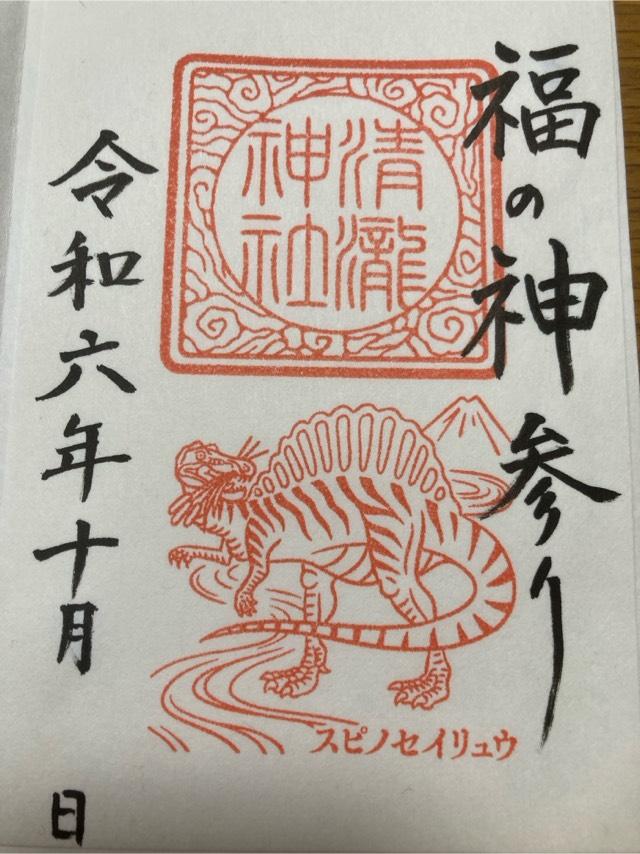 福の神参り
清瀧
神社
スピノセイリュウ
令和六年十月 日